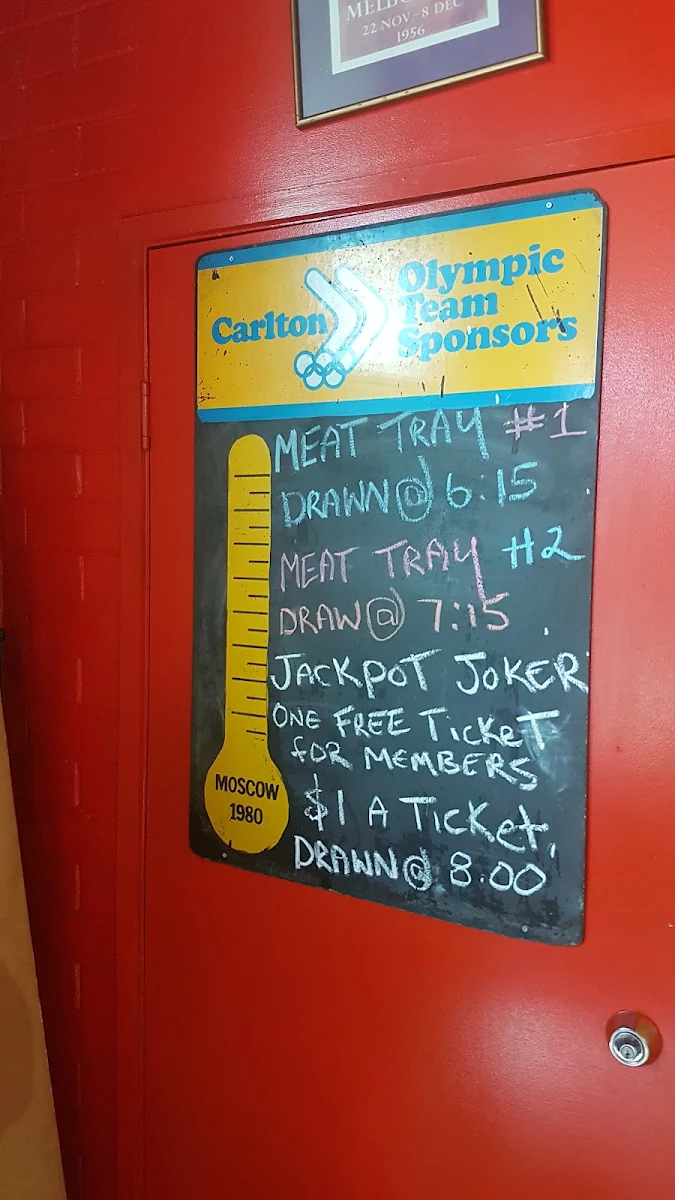 22 NOV - 8 DEC
1956
Carlton
Olympic
Team
Sponsors
MEAT TRAY #1
DRAWN @ 6:15
MEAT TRAY #2
DRAW @ 7:15
JACKPOT JOKER
ONE FREE TICKET
FOR MEMBERS
$1 A TICKET.
DRAWN @ 8.00
MOSCOW
1980